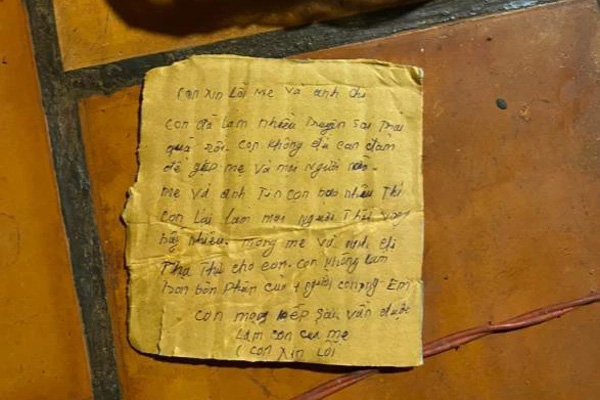 con xin Lỗi mẹ và anh chị
con đã Làm nhiều truyện sai Trái
quá rồi. con không đủ can đảm
để gặp mẹ và mọi người nữa.
mẹ và anh Tin con bao nhiêu Thì
con Lại Làm mọi người Thất vọng
bấy nhiêu. mong mẹ và anh chị
Tha Thứ cho con. con không Làm
Tròn bổn phận của 1 người con, ng Em
con mong kiếp sau vẫn được
Làm con của mẹ
( con xin Lỗi